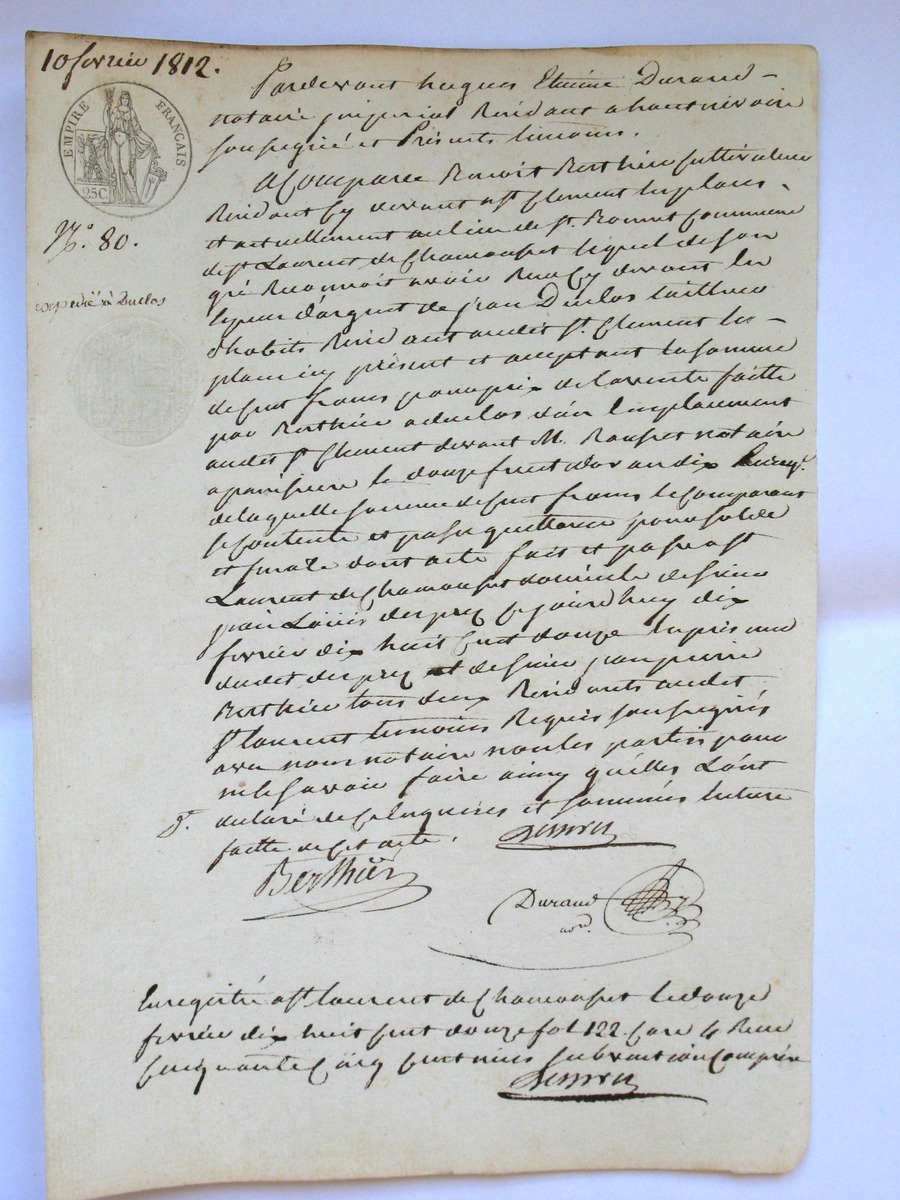 10 fevrier 1812.
EMPIRE FRANÇAIS
25C
N.° 80.
expedié à Duclos
Pardevant hugues Etienne Durand
notaire imperial Residant a haut rivoire
soussigné et Présents temoins.
A Comparu Benoit Berthier cultivateur
Residant Cy devant a st Clement les places
et actuellement au lieu de st. Bonnet Commune
de st Laurent de Chamousset lequel de son
gré Reconnoit avoir Recu Cy devant en
especes d'argent de jean Duclos tailleur
d'habits Resid ant audit st. Clement les
places icy présent et acceptant la somme
de cent francs pour prix de la vente faitte
par Berthier a duclos d'un Emplacement
audit st Clement devant M. notaire
a le douze d'avandix
de laquelle somme de cent francs le Comparant
se Contente et passe quittance pour solde
et finale dont acte fait et passé a st
Laurent de Chamousset domicile de sieur
jean Louis desprez Cejourdhuy dix
fevrier dix huit Cent douze En présence
dudit desprez et de sieur jean pierre
Berthier tous deux Residants audit
st laurent temoins Requis soussignés
avec nous notaire non les parties pour
ne le savoir faire ainsy quelles L'ont
declaré de Ce Enquises et sommées lecture
faitte de Cet acte.
D.
Berthier
Durand
not.
Enregistré a st laurent de Chamousset le douze
fevrier dix huit cent douze fol 122 Case 4 Recu
Cinquante Cinq Centimes subvention Comprise